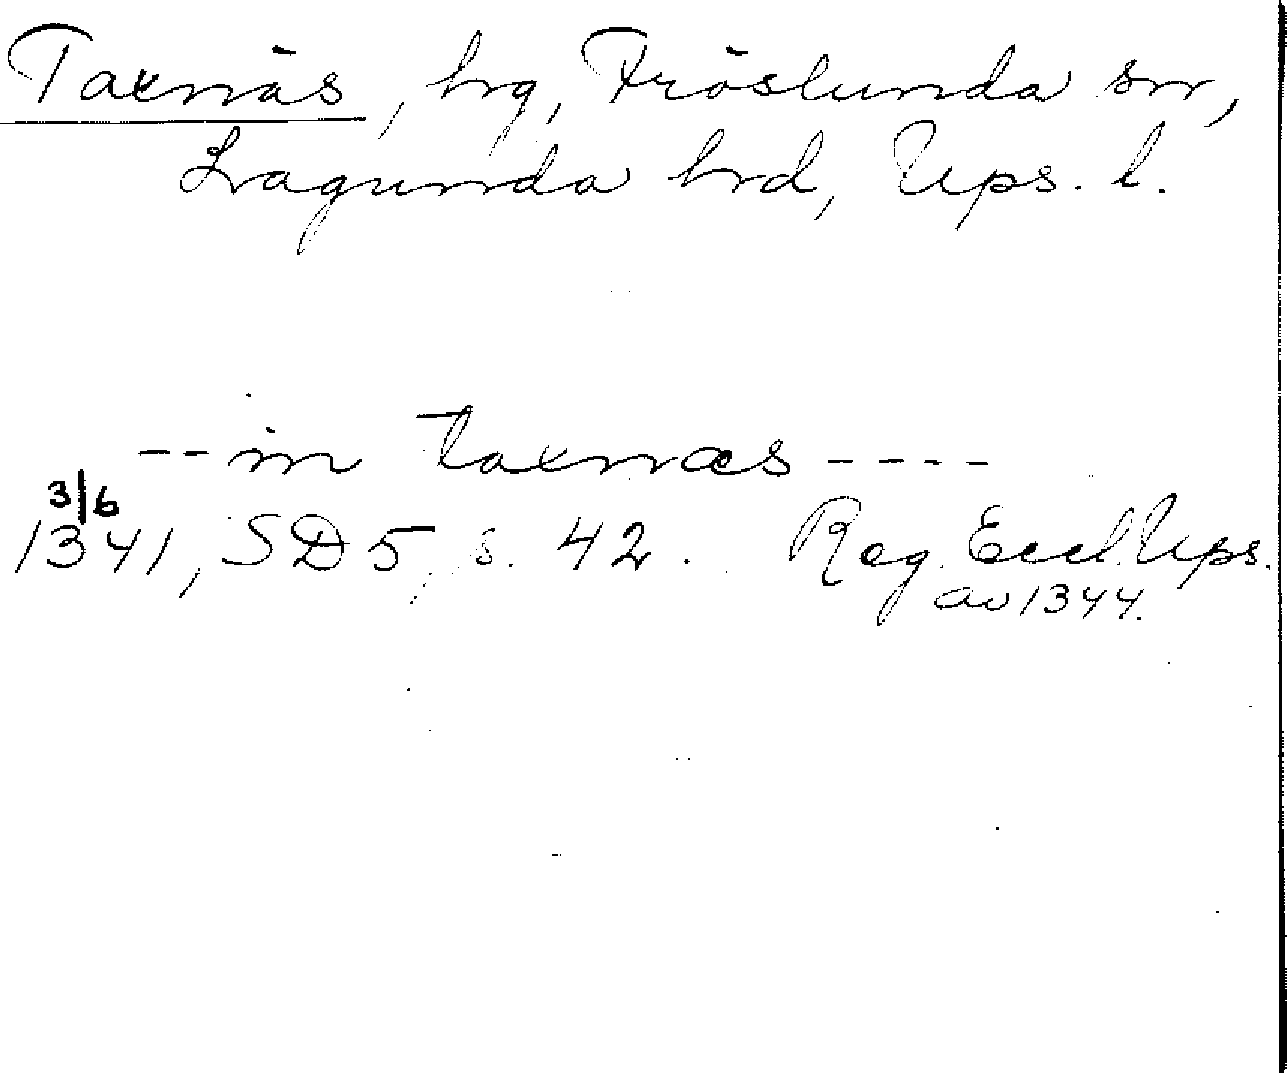 Taxnäs, hg, Fröslunda sn,
Lagunda hrd, Ups. l.
-- in taxnæs ----
3/6
1341, SD 5, s. 42. Reg. Eccl. Ups.
av 1344.